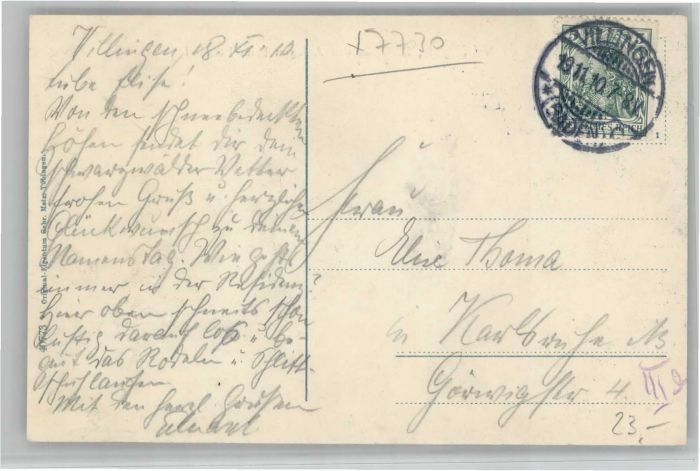 Villingen, 18. XI. 10.
Liebe Elise!
Von den schneebedeckten
Höhen sendet dir dein
schwarzwälder Vetter
frohen Gruß u. herzliche
Glückwunsch zu deinem
Namenstag. Wie geht's
immer in der Residenz?
Hier oben schneits schon
lustig darauf los u. be-
das Rodeln u. Schlitt-
schuhlaufen
Mit den herzl. Grüßen
X7730
VILLINGEN
18.11.10.7-8N
(BADEN)
Frau
Elise Thoma
in Karlsruhe i/B
Görwigstr 4.
III
23,-
Original-Eigentum Gebr. Metz, Tübingen.